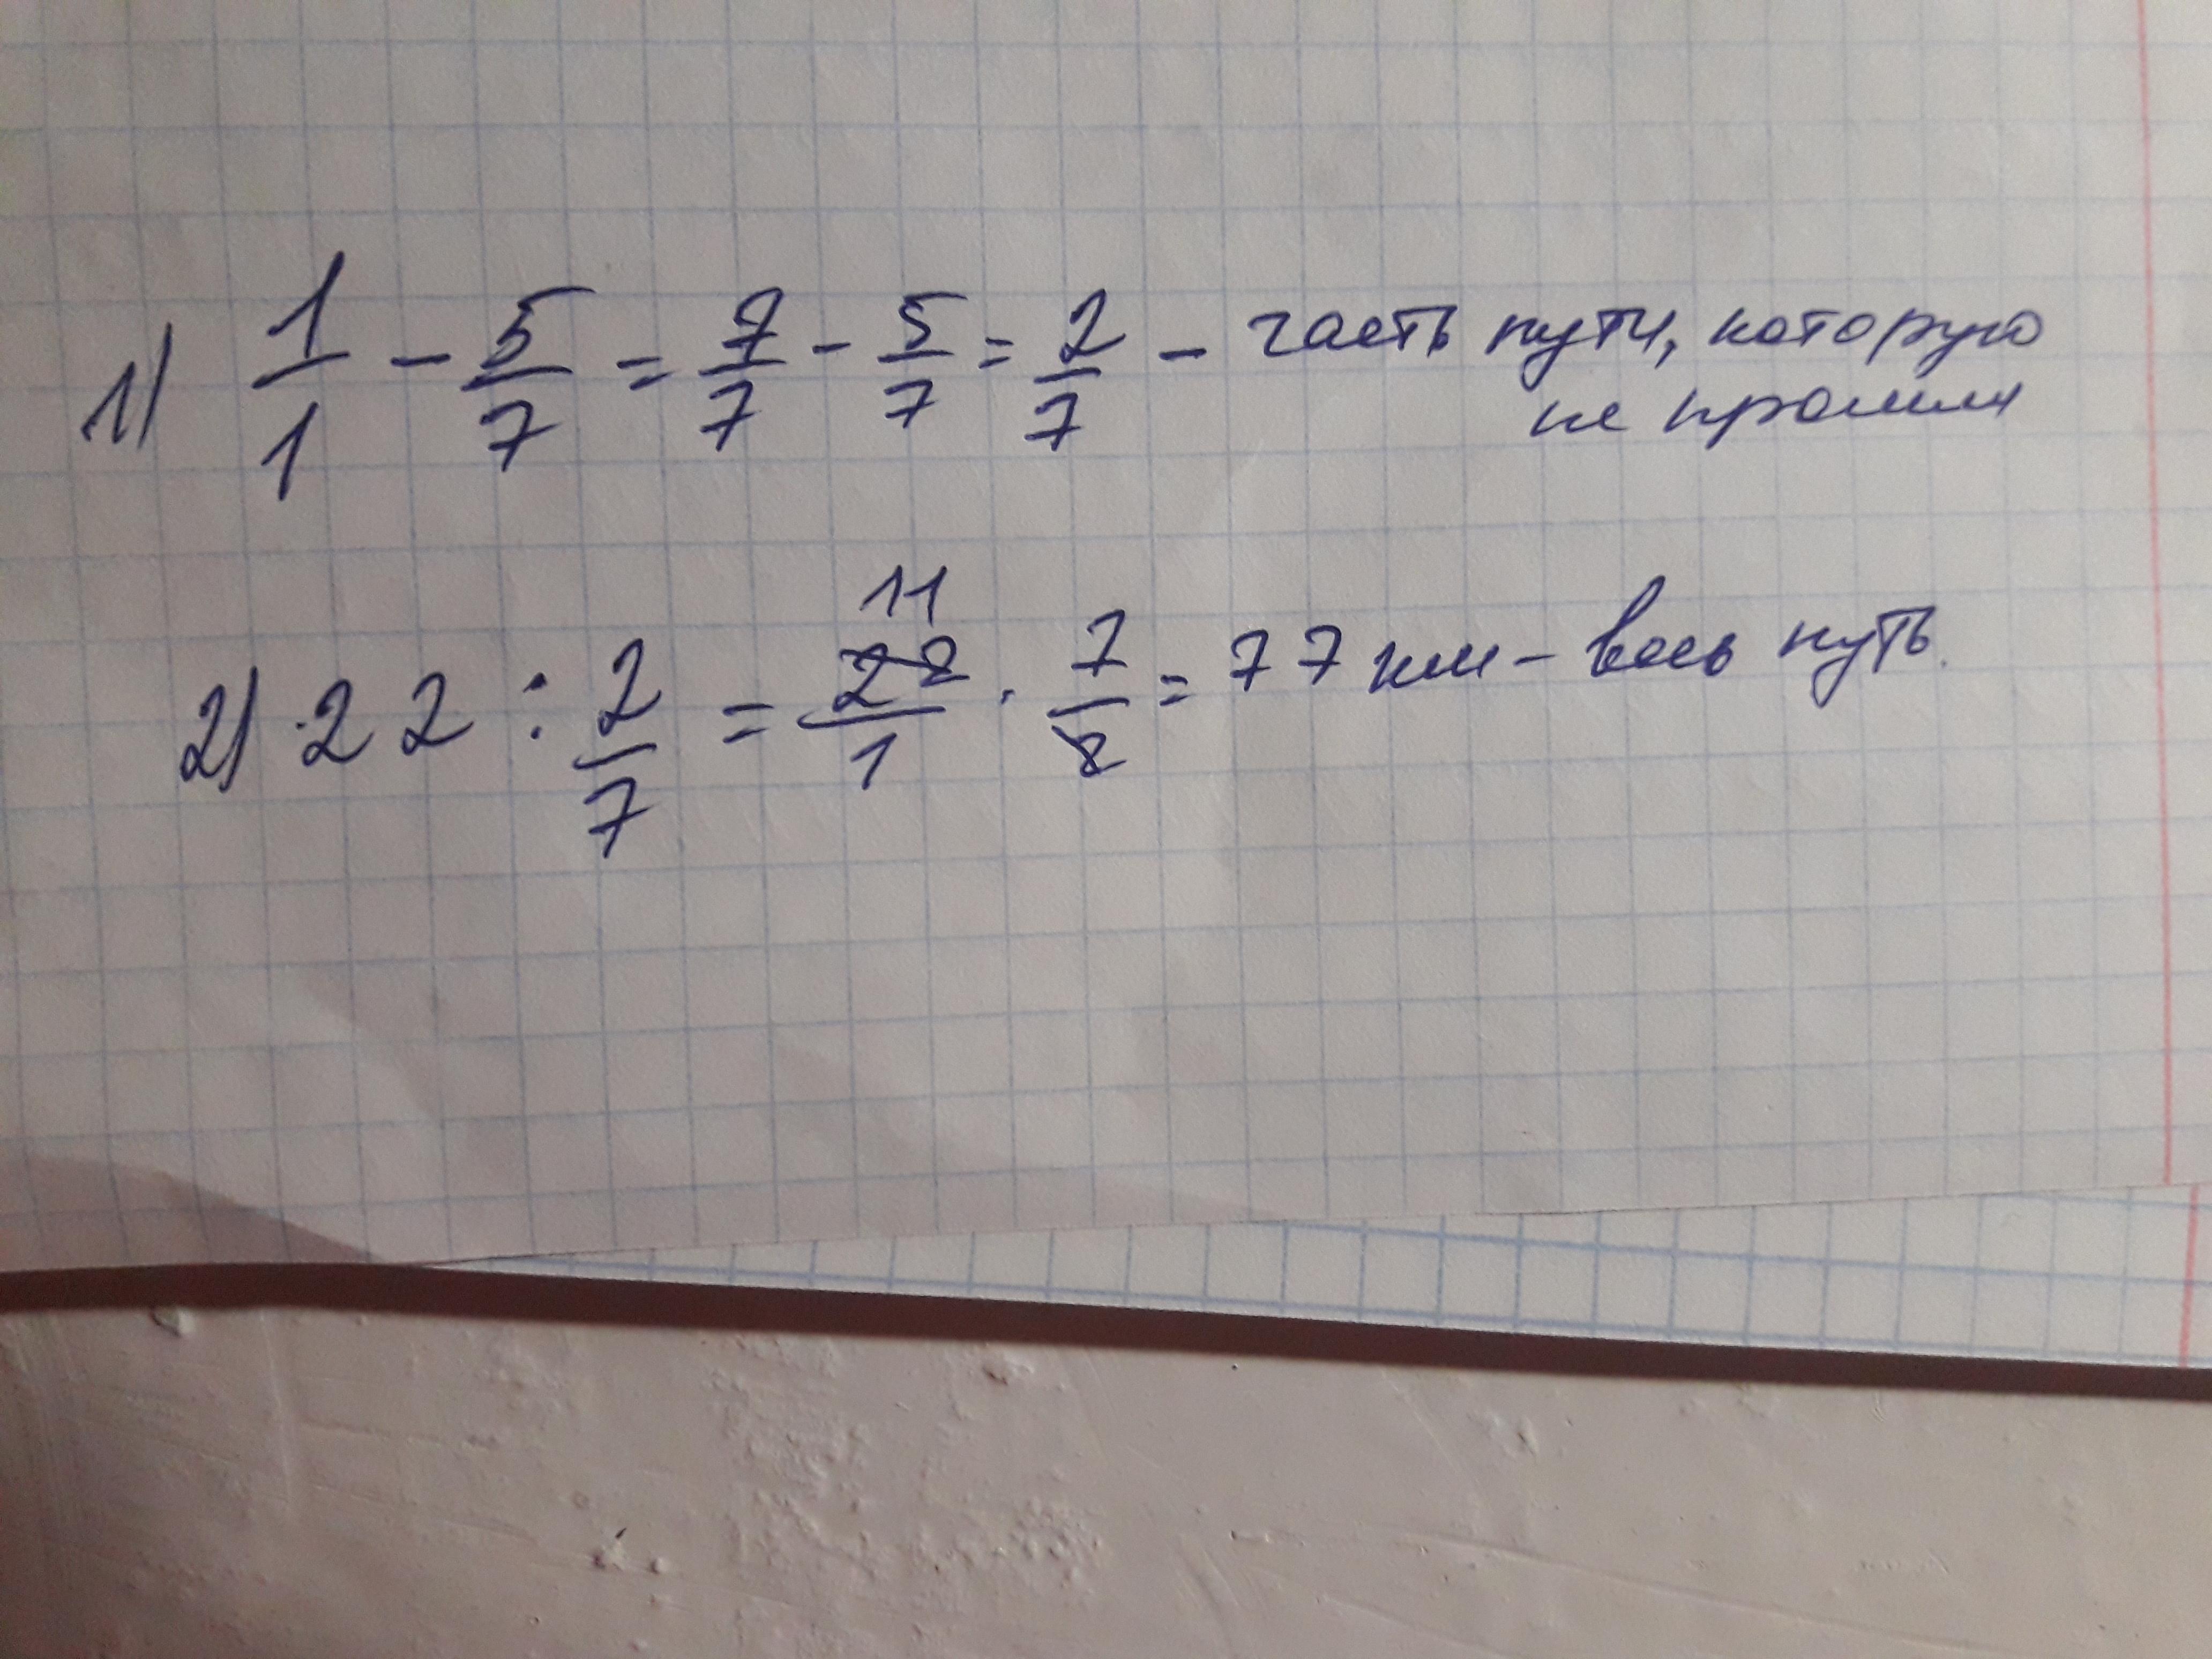 1) 1/1 - 5/7 = 7/7 - 5/7 = 2/7 - часть пути, которую
не прошли
11
2) 22 : 2/7 = 22/1 · 7/2 = 77 км - весь путь.